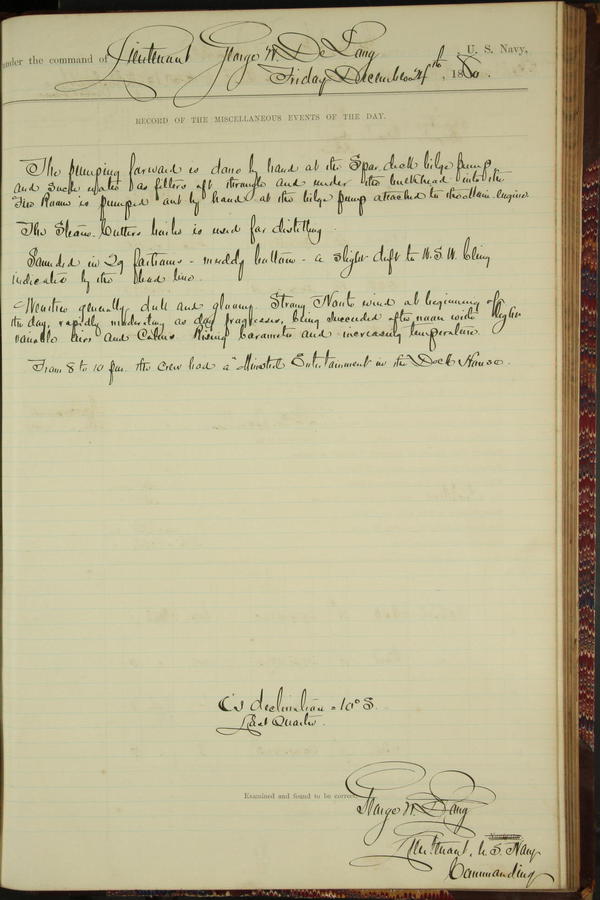 under the command of Lieutenant George W. De Long , U. S. Navy,
Friday December 24th , 1880.
RECORD OF THE MISCELLANEOUS EVENTS OF THE DAY.
The pumping forward is done by hand at the Spar deck bilge pump
and such water as filters aft through and under the bulkhead into the
Fire Room is pumped out by hand at the bilge pump attached to the main engine
The Steam-Cutters boiler is used for distilling.
Sounded in 29 fathoms - muddy bottom - a slight drift to W.S.W. being
indicated by the lead line.
Weather generally dull and gloomy. Strong North wind at beginning of
the day, rapidly moderating as day progresses, being succeeded after noon with light
variable airs and Calms. Rising barometer and increasing temperature.
From 8 to 10 p.m. the crew had a "Minstrel Entertainment" in the Deck House.
☾'s declination = 10° S.
Last Quarter.
Examined and found to be correct.
George W. De Long
Lieutenant, U.S. Navy
Commanding